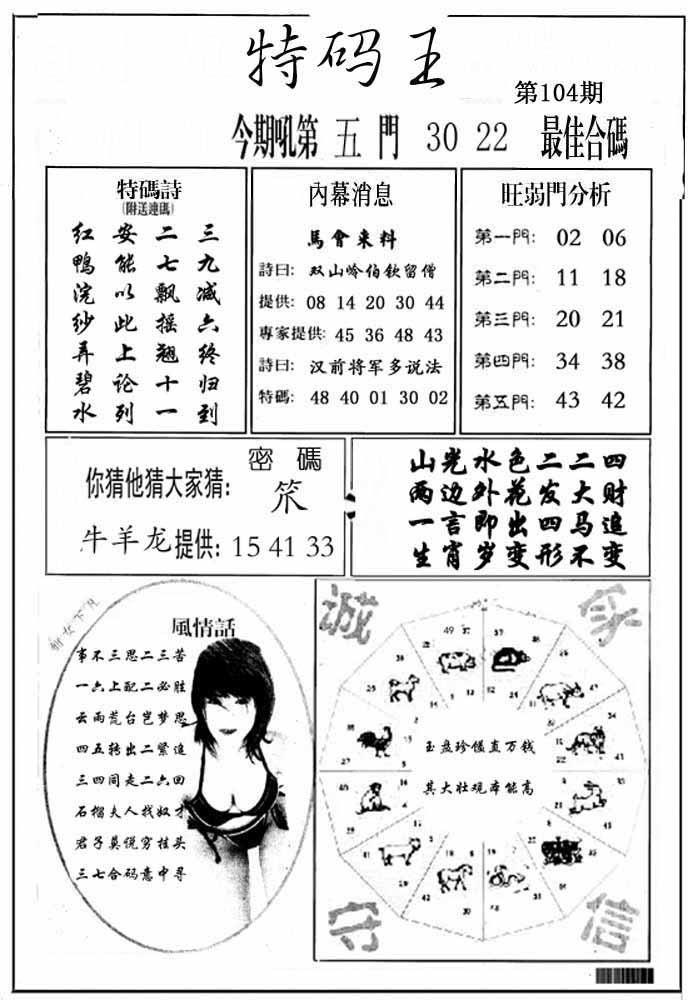 特码王
第104期
今期吼第 五 門 30 22 最佳合碼
特碼詩
(附送連碼)
红 安 二 三
鴨 能 七 九
浣 以 飘 减
纱 此 摇 六
弄 上 翘 终
碧 论 十 归
水 列 一 到
內幕消息
馬會来料
詩曰: 双山岭伯钦留僧
提供: 08 14 20 30 44
專家提供: 45 36 48 43
詩曰: 汉前将军多说法
特碼: 48 40 01 30 02
旺弱門分析
第一門: 02 06
第二門: 11 18
第三門: 20 21
第四門: 34 38
第五門: 43 42
密 碼
你猜他猜大家猜:
牛羊龙提供: 15 41 33
山光水色二二四
两边外花发大财
一言即出四马追
生肖岁变形不变
風情話
事不三思二三苦
一六上配二必胜
云雨荒台岂梦思
四五转出二紧追
三四同走二六回
石榴夫人找奴才
君子莫说穷挂头
三七合码意中寻
诚
家
守
信
玉盘珍馐直万钱
其大壮观本能高
49 37